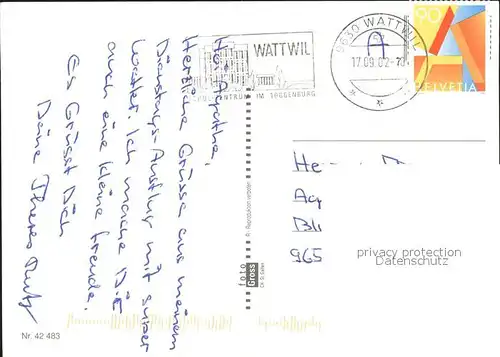 Hoi Agathe,
Herzliche Grüsse aus meinem
Dienstags-Ausflug mit super
Wetter. Ich mache Dir
auch eine kleine Freude.
Es Grüsst Dich
Deine Theres
WATTWIL
IM TOGGENBURG
9630 WATTWIL
A
17.09.02
90
HELVETIA
He
Ag
Bl
965
privacy protection
Datenschutz
Reproduktion verboten
foto
Gross
CH St. Gallen
Nr. 42 483